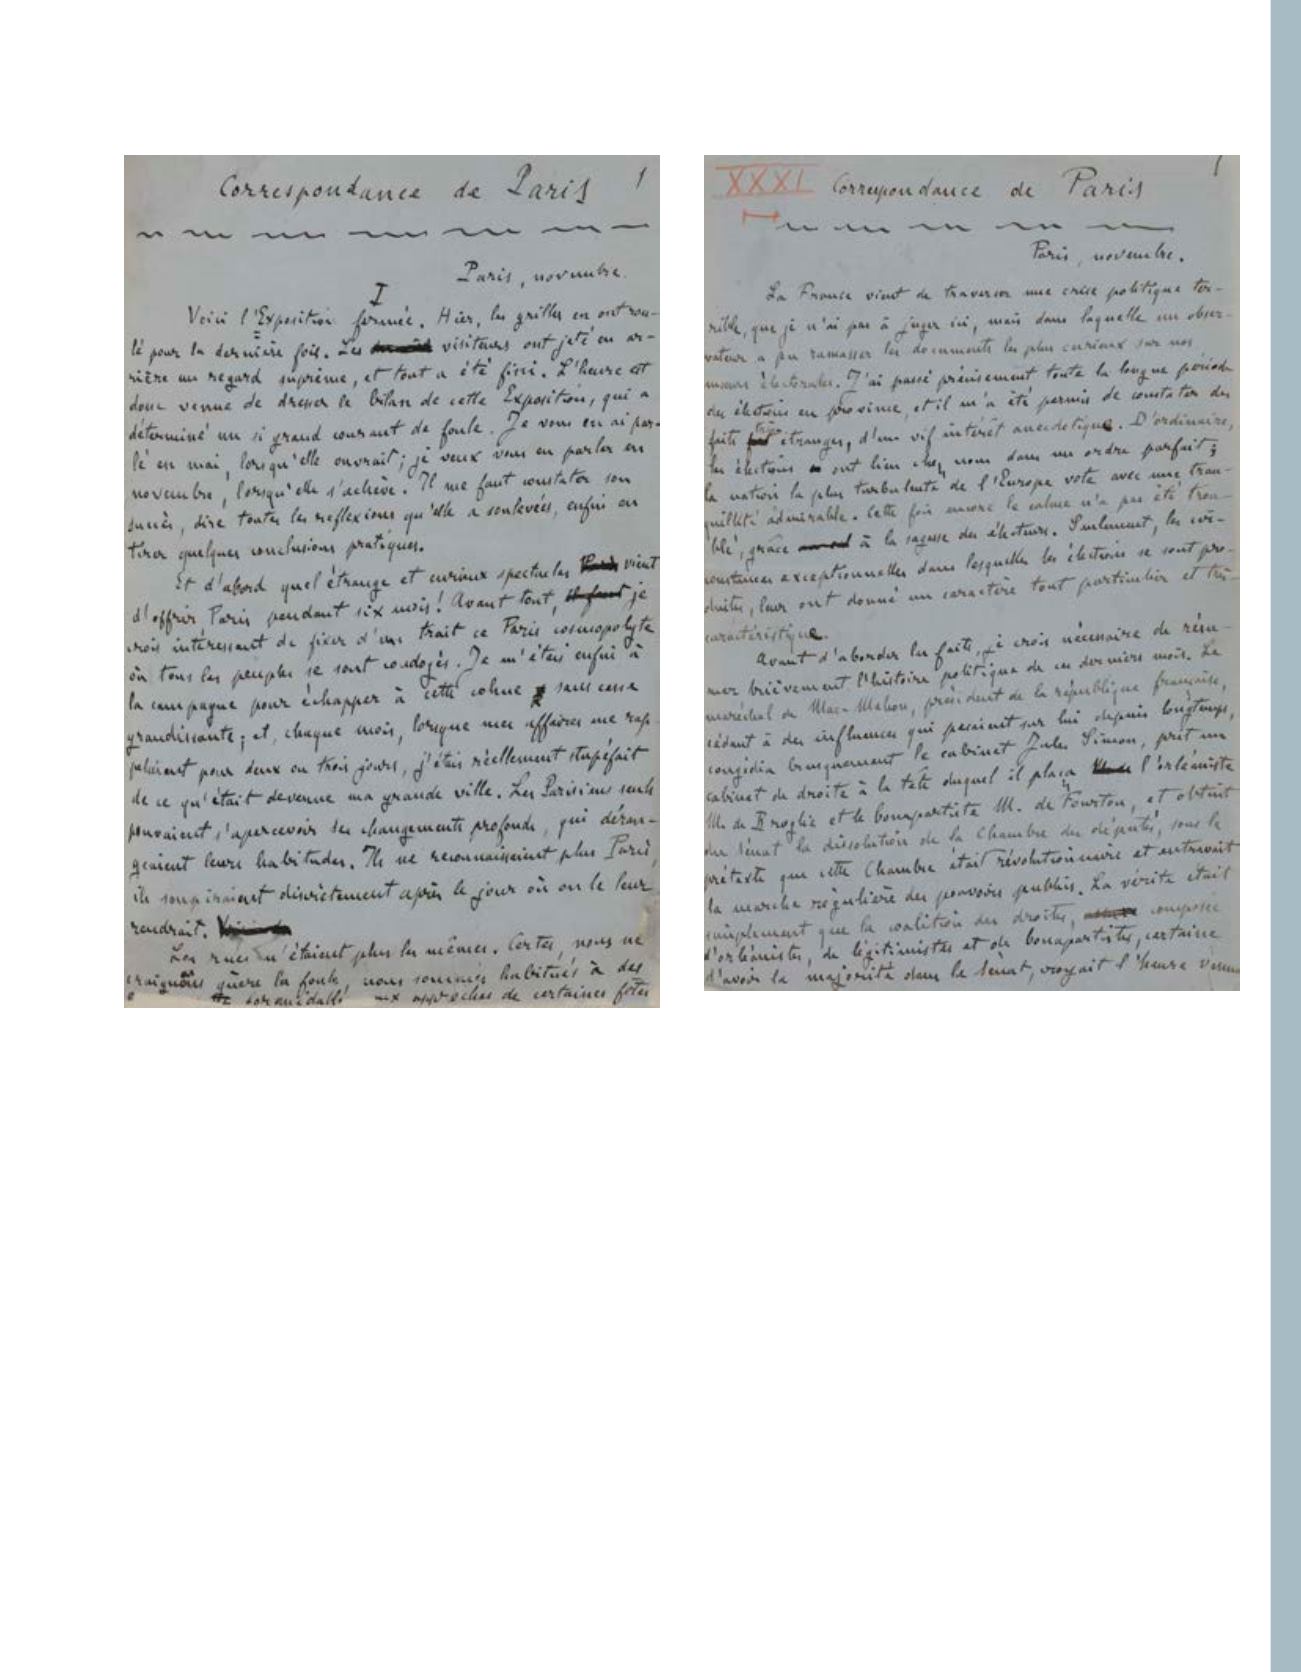 Correspondance de Paris
1
Paris, novembre.
I
Voici l'Exposition fermée. Hier, les grilles en ont rou-
lé pour la dernière fois. Les visiteurs ont jeté en ar-
rière un regard suprême, et tout a été fini. L'heure est
donc venue de dresser le bilan de cette Exposition, qui a
déterminé un si grand courant de foule. Je vous en ai par-
lé en mai, lorsqu'elle ouvrait; je veux vous en parler en
novembre, lorsqu'elle s'achève. Il me faut constater son
succès, dire toutes les reflexions qu'elle a soulevées, enfin en
tirer quelques conclusions pratiques.
Et d'abord quel étrange et curieux spectacles vient
d'offrir Paris pendant six mois! Avant tout, je
crois intéressant de fixer d'un trait ce Paris cosmopolyte
où tous les peuples se sont coudoyés. Je m'étais enfui à
la campagne pour échapper à cette cohue sans cesse
grandissante; et, chaque mois, lorsque mes affaires me rap-
pelaient pour deux ou trois jours, j'étais réellement stupéfait
de ce qu'était devenue ma grande ville. Les Parisiens seuls
pouvaient s'apercevoir des changements profonds, qui déran-
geaient leurs habitudes. Ils ne reconnaissaient plus Paris,
ils soupiraient discrètement après le jour où on le leur
rendrait.
Les rues n'étaient plus les mêmes. Certes, nous ne
craignons guère la foule, nous sommes habitués à des
formidables aux approches de certaines fêtes
XXXI Correspondance de Paris
1
Paris, novembre.
La France vient de traverser une crise politique ter-
rible, que je n'ai pas à juger ici, mais dans laquelle un obser-
vateur a pu ramasser les documents les plus curieux sur nos
mœurs électorales. J'ai passé précisement toute la longue période
des élections en province, et il m'a été permis de constater des
faits très étranges, d'un vif intérêt anecdotique. D'ordinaire,
les élections ont lieu chez nous dans un ordre parfait;
la nation la plus turbulente de l'Europe vote avec une tran-
quillité admirable. Cette fois encore le calme n'a pas été trou-
blé, grâce à la sagesse des électeurs. Seulement, les cir-
constances exceptionnelles dans lesquelles les élections se sont pro-
duites, leur ont donné un caractère tout particulier et très-
caractéristique.
Avant d'aborder les faits, je crois nécessaire de résu-
mer brièvement l'histoire politique de ces derniers mois. Le
maréchal de Mac-Mahon, président de la république française,
cédant à des influences qui pesaient sur lui depuis longtemps,
congédia brusquement le cabinet Jules Simon, prit un
cabinet de droite à la tête duquel il plaça l'orléaniste
M. de Broglie et le bonapartiste M. de Fourtou, et obtint
du Sénat la dissolution de la Chambre des députés, sous le
prétexte que cette Chambre était révolutionnaire et entravait
la marche régulière des pouvoirs publics. La vérité était
simplement que la coalition des droites, composée
d'orléanistes, de légitimistes et de bonapartistes, certaine
d'avoir la majorité dans le Sénat, croyait l'heure venue